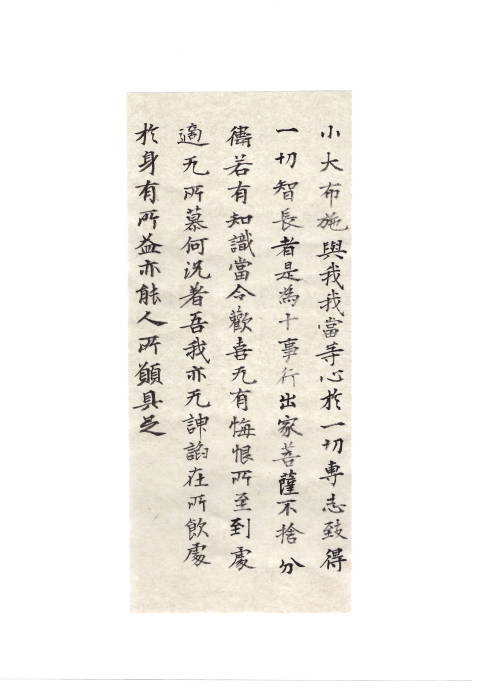 小大布施與我我當等心於一切専志致得
一切智長者是為十事行出家菩薩不捨分
衛若有知識當令歡喜无有悔恨所至到處
適无所慕何況着吾我亦无諀謟在所飲處
於身有所益亦能人所願具足